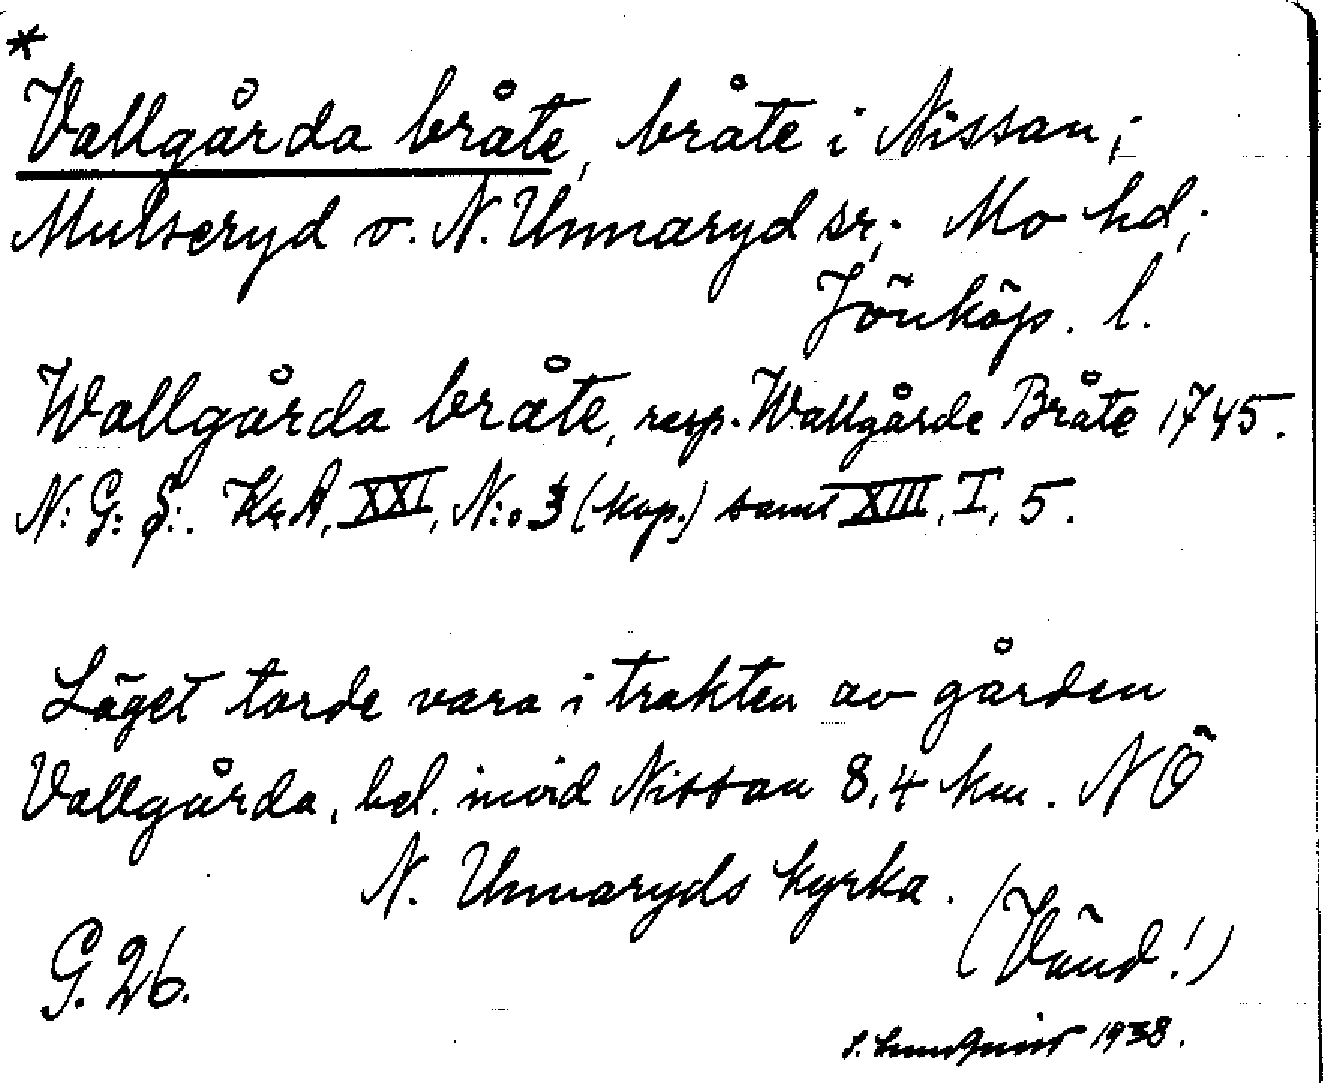 *
Vallgårda bråte, bråte i Nissan;
Mulseryd o. N. Unnaryd sr; Mo hd;
Jönköp. l.
Wallgårda bråte, resp. Wallgårde Bråte 1745.
N: G: S:. Kr.A, XXI, N:o 3 (kop.) samt XIII, I, 5.
Läget torde vara i trakten av gården
Vallgårda, bel. invid Nissan 8,4 km. NÖ
N. Unnaryds kyrka.
(Vänd!)
G. 26.
1938.